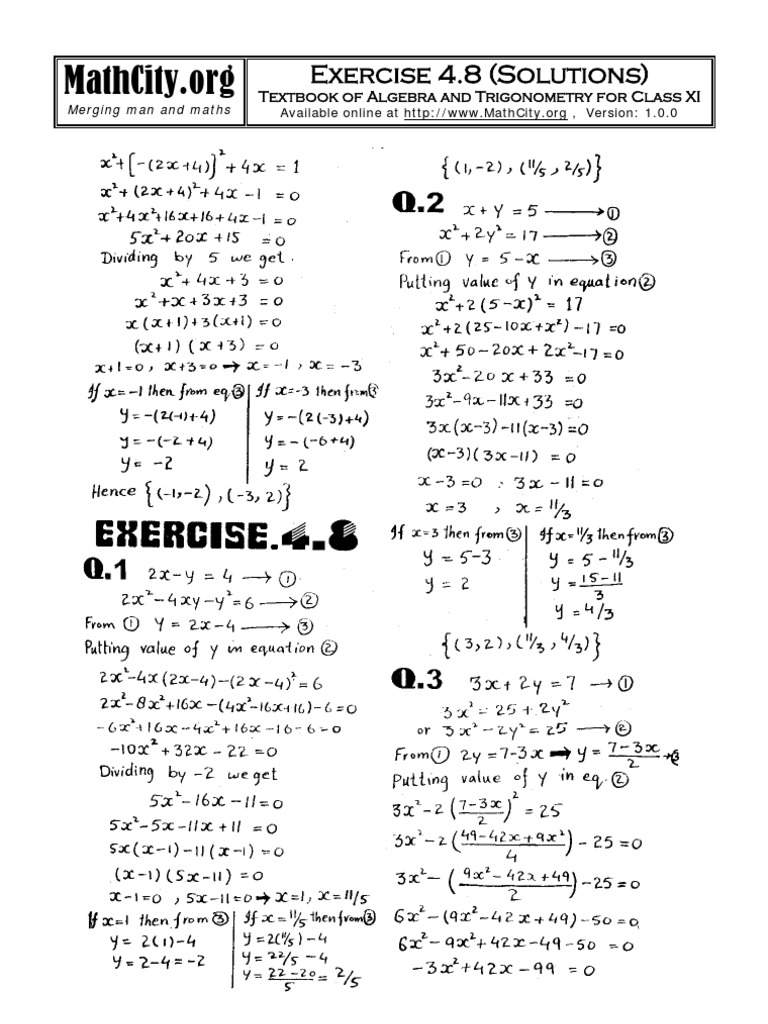 MathCity.org
Merging man and maths
EXERCISE 4.8 (SOLUTIONS)
TEXTBOOK OF ALGEBRA AND TRIGONOMETRY FOR CLASS XI
Available online at http://www.MathCity.org , Version: 1.0.0
x²+[-(2x+4)]²+4x = 1
x²+(2x+4)²+4x-1 = 0
x²+4x²+16x+16+4x-1 = 0
5x²+20x+15 = 0
Dividing by 5 we get.
x²+4x+3 = 0
x²+x+3x+3 = 0
x(x+1)+3(x+1) = 0
(x+1)(x+3) = 0
x+1=0, x+3=0 → x=-1, x=-3
If x=-1 then from eq③ | If x=-3 then from③
y=-(2(-1)+4) | y=-(2(-3)+4)
y=-(-2+4) | y=-(-6+4)
y= -2 | y= 2
Hence {(-1,-2),(-3,2)}
EXERCISE.4.8
Q.1 2x-y = 4 → ①
2x²-4xy-y²=6 → ②
From ① y = 2x-4 → ③
Putting value of y in equation ②
2x²-4x(2x-4)-(2x-4)²=6
2x²-8x²+16x-(4x²-16x+16)-6=0
-6x²+16x-4x²+16x-16-6=0
-10x²+32x-22=0
Dividing by -2 we get
5x²-16x-11=0
5x²-5x-11x+11=0
5x(x-1)-11(x-1)=0
(x-1)(5x-11)=0
x-1=0, 5x-11=0 → x=1, x=11/5
If x=1 then from ③ | If x=11/5 then from③
y= 2(1)-4 | y=2(11/5)-4
y= 2-4=-2 | y=22/5-4
y=22-20/5=2/5
{(1,-2),(11/5,2/5)}
Q.2 x+y=5 → ①
x²+2y²=17 → ②
From① y = 5-x → ③
Putting value of y in equation②
x²+2(5-x)² = 17
x²+2(25-10x+x²)-17=0
x²+50-20x+2x²-17=0
3x²-20x+33=0
3x²-9x-11x+33=0
3x(x-3)-11(x-3)=0
(x-3)(3x-11)=0
x-3=0, 3x-11=0
x=3, x=11/3
If x=3 then from③ | If x=11/3 then from③
y = 5-3 | y = 5-11/3
y = 2 | y = 15-11/3
y = 4/3
{(3,2),(11/3,4/3)}
Q.3 3x+2y=7 → ①
3x²=25+2y²
or 3x²-2y²=25 → ②
From① 2y=7-3x → y=7-3x/2 → ③
Putting value of y in eq.②
3x²-2(7-3x/2)²=25
3x²-2(49-42x+9x²/4)-25=0
3x²-(9x²-42x+49/2)-25=0
6x²-(9x²-42x+49)-50=0
6x²-9x²+42x-49-50=0
-3x²+42x-99=0